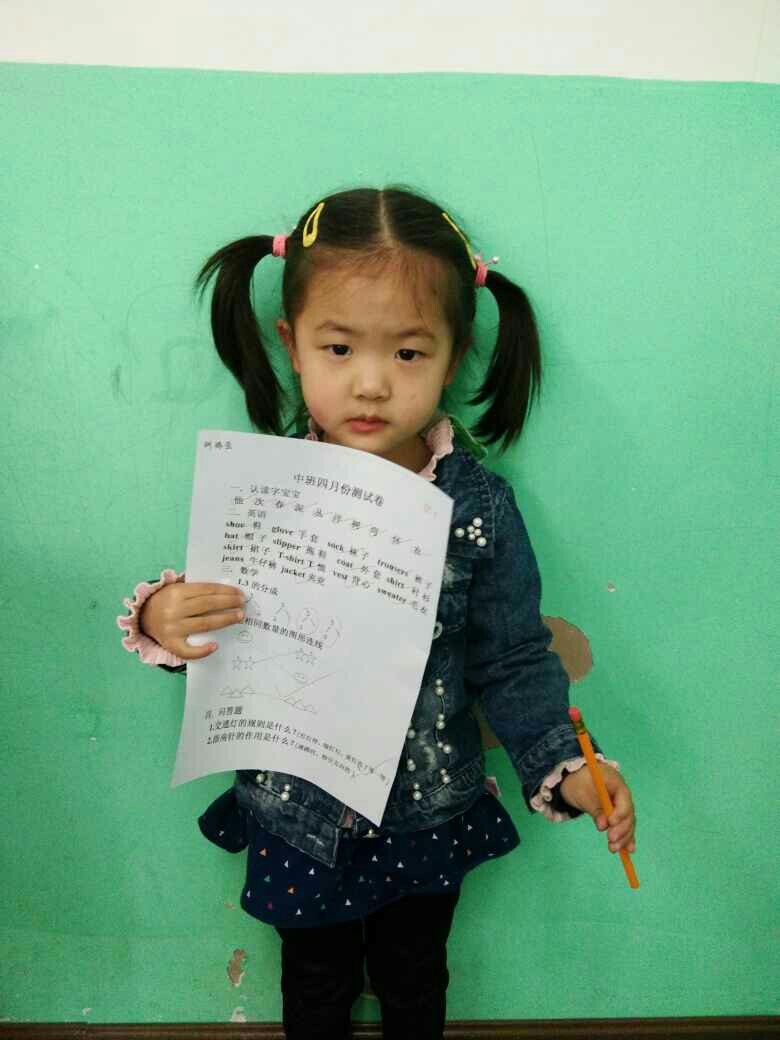 中班四月份测试卷
一. 认读字宝宝
他 次 春 泥 丛 浮 柳 弯 怀 友
二. 英语
shoe 鞋 glove 手套 sock 袜子 trousers 裤子
hat 帽子 slipper 拖鞋 coat 外套 shirt 衬衫
skirt 裙子 T-shirt T 恤 vest 背心 sweater 毛衣
jeans 牛仔裤 jacket 夹克
三. 数学
1.3 的分成
相同数量的图形连线
四. 问答题
1.交通灯的规则是什么？
2.指南针的作用是什么？